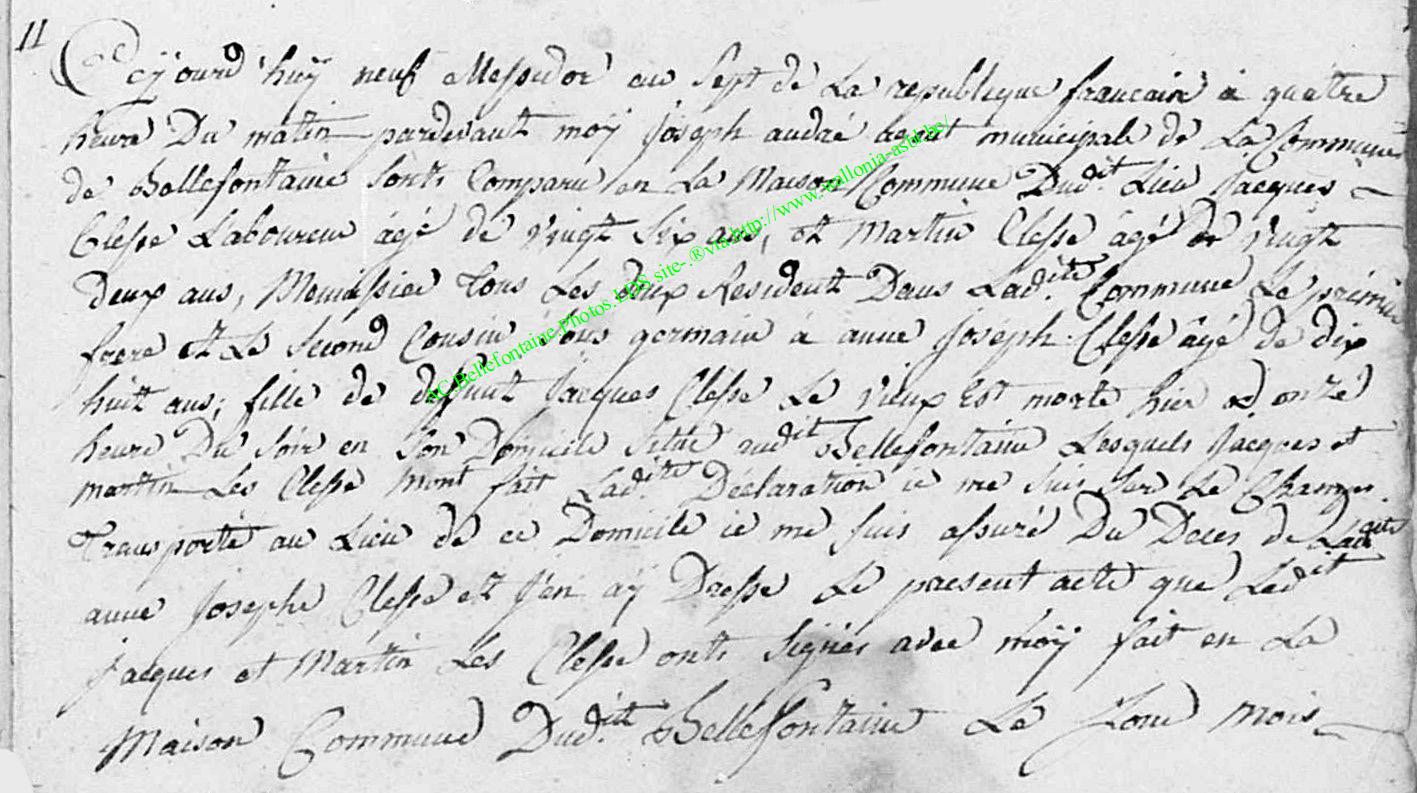 11
Cejourd'huÿ neuf Messidor au Sept de La republique francaise a quattre
heure Du matin pardevant moÿ Joseph andré agent municipale de La Commune
de Bellefontaine Sonts Comparu en La Maison Commune Dudit Lieu Jacques
Clesse Laboureur âgé de Vingt Six ans, et Martin Clesse âgé de Vingt
deux ans, Menussier Tous Les deux Resident Dans Ladite Commune Le premier
frere et Le Second Cousin sous germain à anne Joseph Clesse âgé de dix
huit ans; fille de deffunt Jacques Clesse Le Vieux Est morte hier à onze
heure Du Soir en Son Domicile Situé audit Bellefontaine Lesquels Jacques et
martin Les Clesse mont fait Ladite Déclaration ie me Suis Ser Le Champs
Transporté au Lieu de ce Domicile ie me suis assuré Du Deces de Ladite
anne Josephe Clesse et J'en aÿ Dresse Le present acte que Ledit
Jacques et Martin Les Clesse onts Signés avec moÿ fait en La
Maison Commune Dudit Bellefontaine Le Jour mois
AC-Bellefontaine-Photos.LDS.site-.®via.http://www.wallonia-asbl.be/